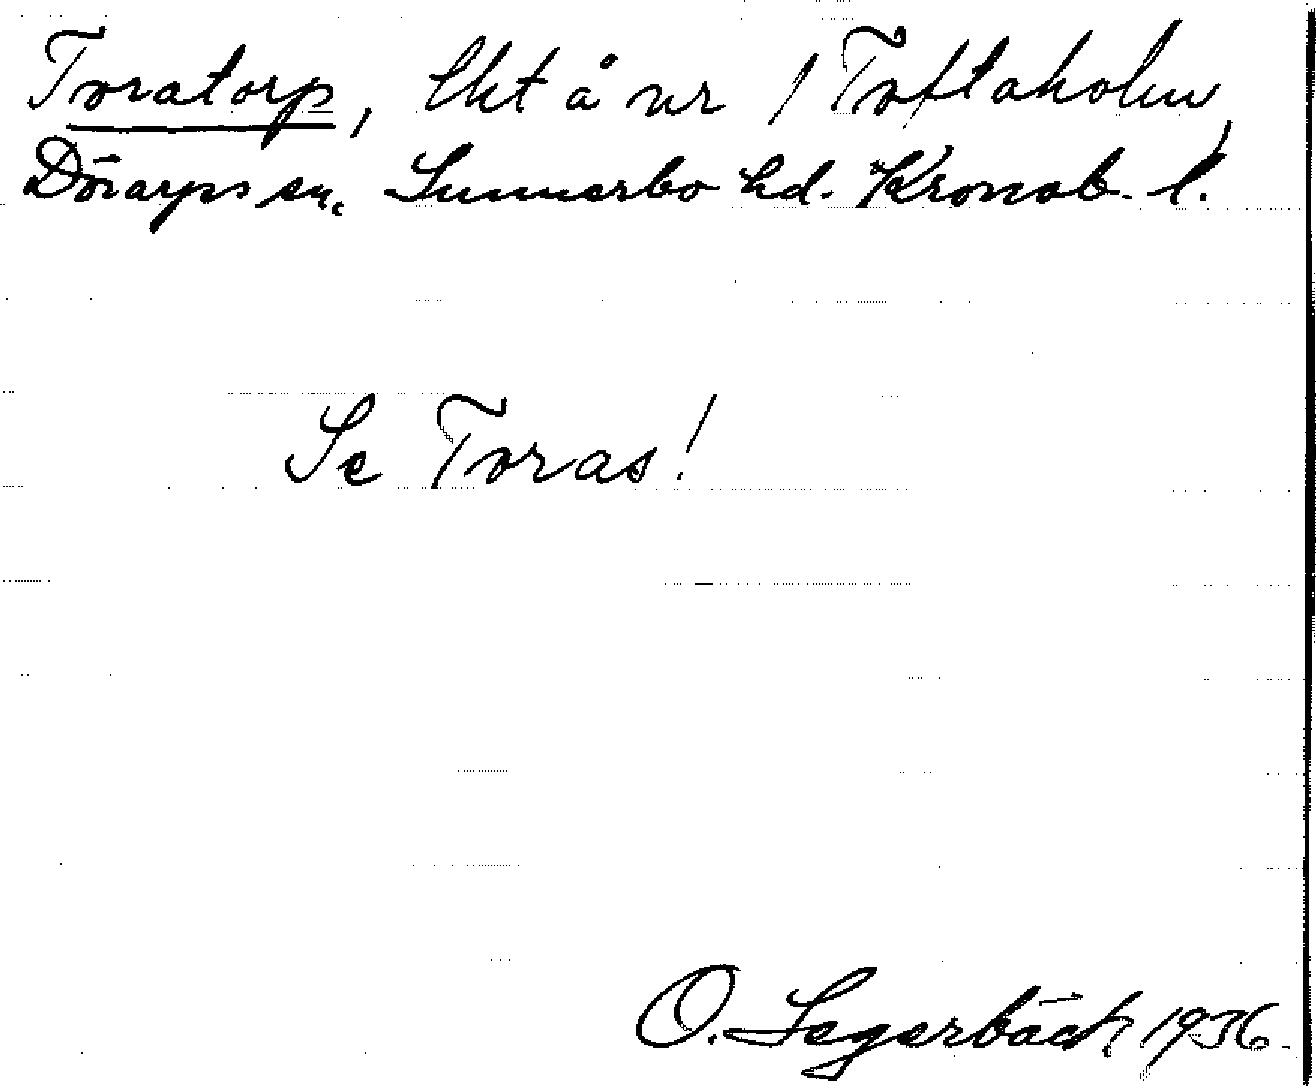 Toratorp, lht å nr 1 Toftaholm,
Dörarps sn. Sunnerbo hd. Kronob. l.
Se Toras!
O. Segerbäck 1936.